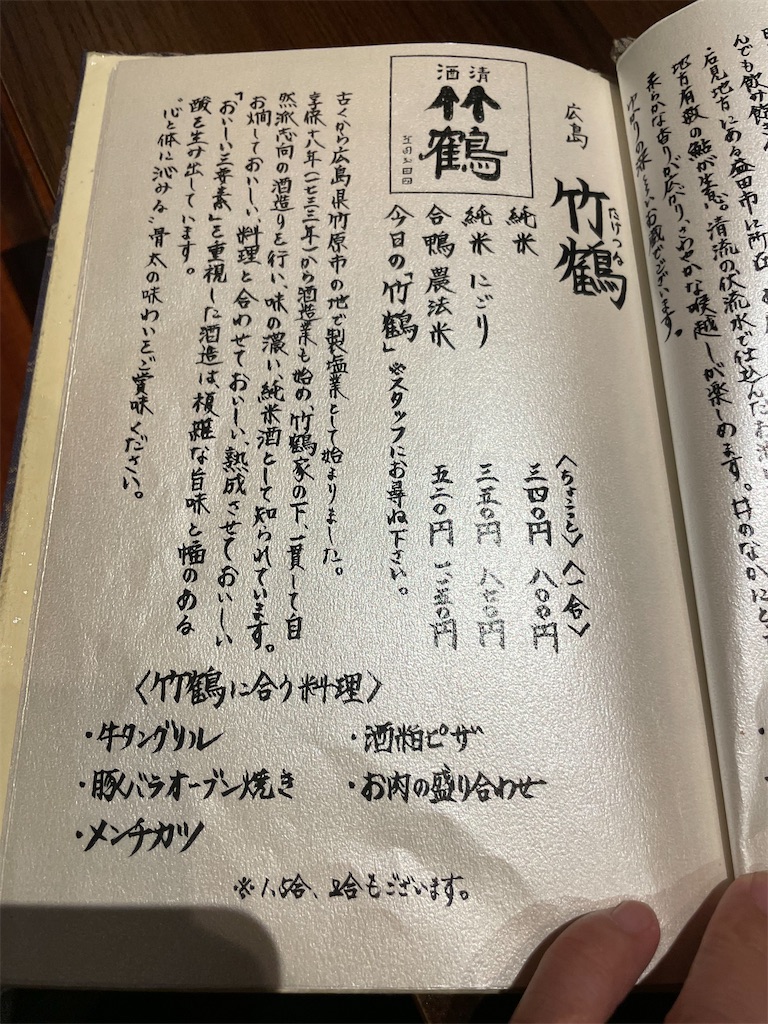 んでも飲み飽き
石見地方にある益田市に所在
地方有数の鮎が生息。清流の伏流水で仕込んだお酒
柔らかな香りが広がり、さわやかな喉越しが楽しめます。井のなかにと
ゆかりの深いお蔵でございます。
広島 竹鶴
たけつる
清酒
竹鶴
〈ちょこっと〉〈一合〉
純米 三四〇円 八〇〇円
純米 にごり 三五〇円 八七〇円
合鴨農法米 五二〇円 一二五〇円
今日の「竹鶴」※スタッフにお尋ね下さい。
古くから広島県竹原市の地で製塩業として始まりました。
享保十八年(一七三三年)から酒造業も始め、竹鶴家の下、一貫して自
然派志向の酒造りを行い、味の濃い純米酒として知られています。
お燗しておいしい、料理と合わせておいしい、熟成させておいしい
「おいしい三要素」を重視した酒造は、複雑な旨味と幅のある
酸を生み出しています。
“心と体に沁みる”骨太の味わいをご賞味ください。
〈竹鶴に合う料理〉
・牛タングリル ・酒粕ピザ
・豚バラオーブン焼き ・お肉の盛り合わせ
・メンチカツ
※1.5合、2合もございます。